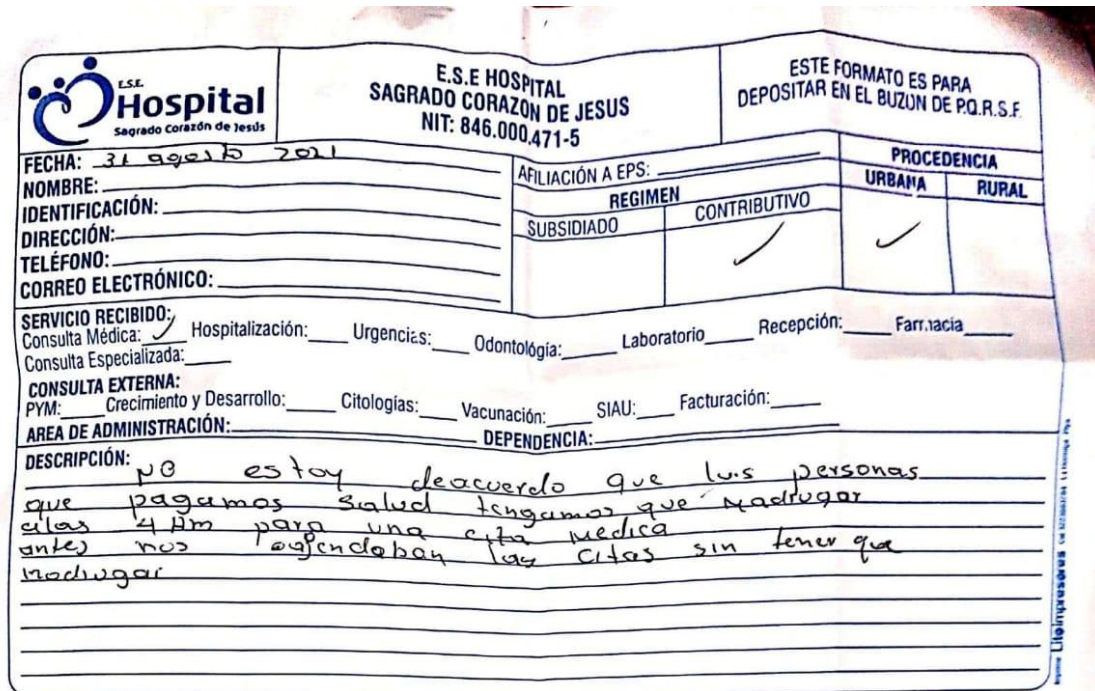 E.S.E.
Hospital
Sagrado Corazón de Jesús
E.S.E HOSPITAL
SAGRADO CORAZON DE JESUS
NIT: 846.000.471-5
ESTE FORMATO ES PARA
DEPOSITAR EN EL BUZON DE P.Q.R.S.F.
FECHA: 31 agosto 2021
NOMBRE:
IDENTIFICACIÓN:
DIRECCIÓN:
TELÉFONO:
CORREO ELECTRÓNICO:
AFILIACIÓN A EPS:
REGIMEN
SUBSIDIADO CONTRIBUTIVO
PROCEDENCIA
URBANA RURAL
SERVICIO RECIBIDO:
Consulta Médica: Hospitalización: Urgencias: Odontológía: Laboratorio Recepción: Farmacia
Consulta Especializada:
CONSULTA EXTERNA:
PYM: Crecimiento y Desarrollo: Citologías: Vacunación: SIAU: Facturación:
AREA DE ADMINISTRACIÓN: DEPENDENCIA:
DESCRIPCIÓN: NO estoy deacuerdo que las personas
que pagamos Salud tengamos que Madrugar
alas 4 Am para una cita Medica
antes nos agendaban las citas sin tener que
madrugar
Litoimpresores